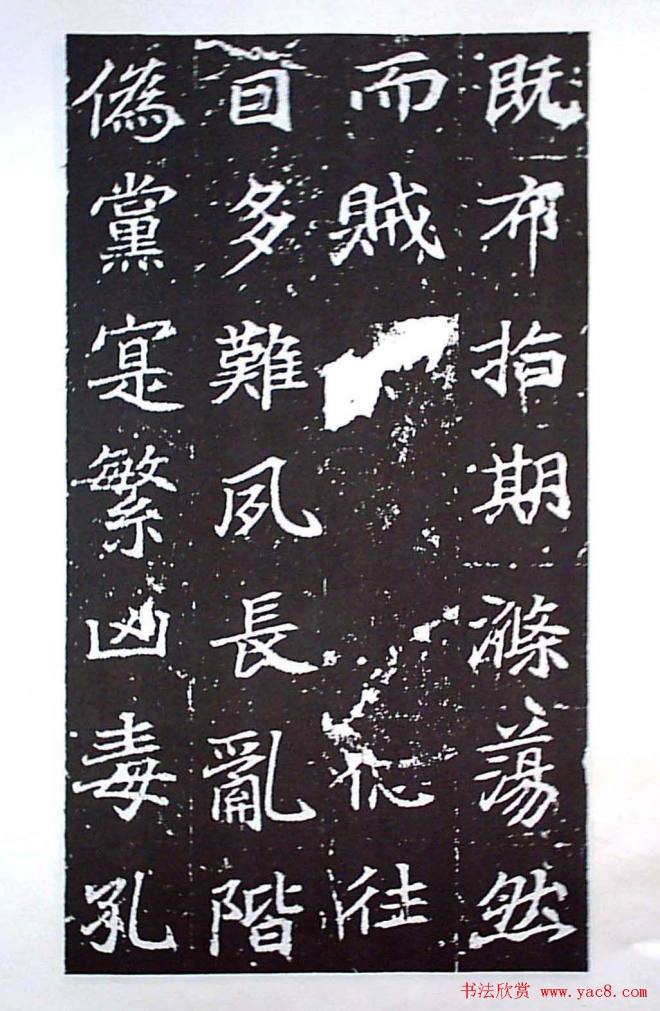 既布指期滌蕩然
而賊往
曰多難夙長亂階
偽黨寔繁凶毒孔
书法欣赏 www.yac8.com